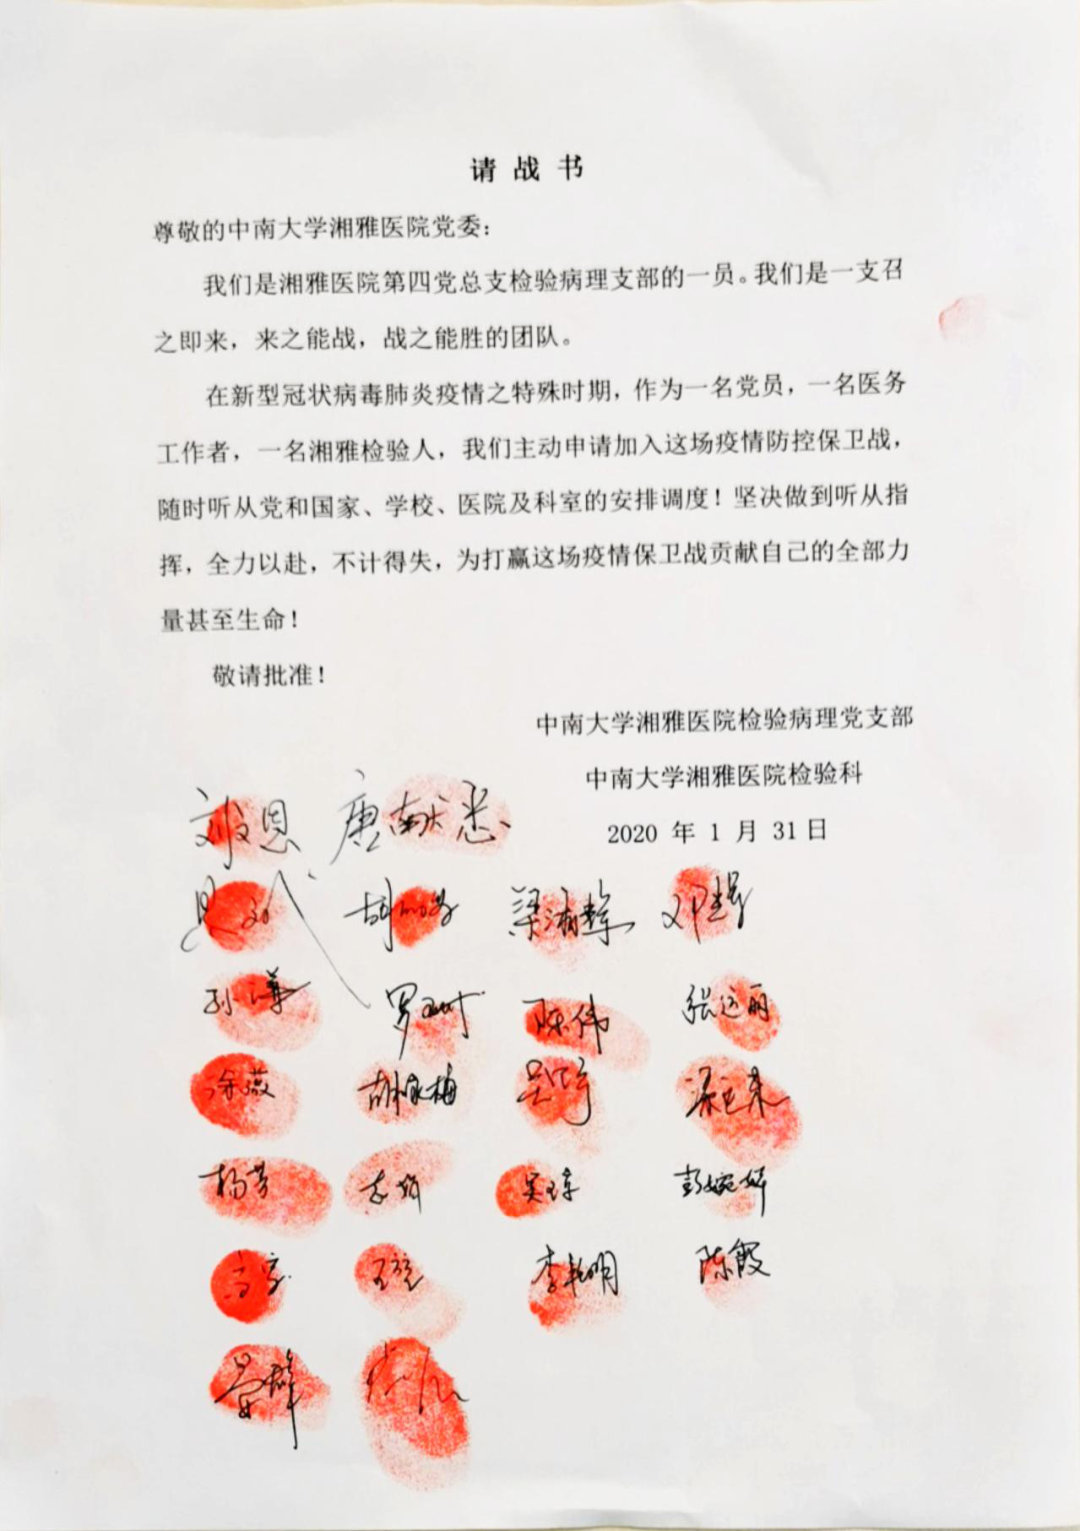 请战书
尊敬的中南大学湘雅医院党委：
我们是湘雅医院第四党总支检验病理支部的一员。我们是一支召
之即来，来之能战，战之能胜的团队。
在新型冠状病毒肺炎疫情之特殊时期，作为一名党员，一名医务
工作者，一名湘雅检验人，我们主动申请加入这场疫情防控保卫战，
随时听从党和国家、学校、医院及科室的安排调度！坚决做到听从指
挥，全力以赴，不计得失，为打赢这场疫情保卫战贡献自己的全部力
量甚至生命！
敬请批准！
中南大学湘雅医院检验病理党支部
中南大学湘雅医院检验科
2020 年 1 月 31日
梁湘辉
陈伟 张远丽
徐薇 胡咏梅
杨芳 彭婉婵
李艳明 陈霞